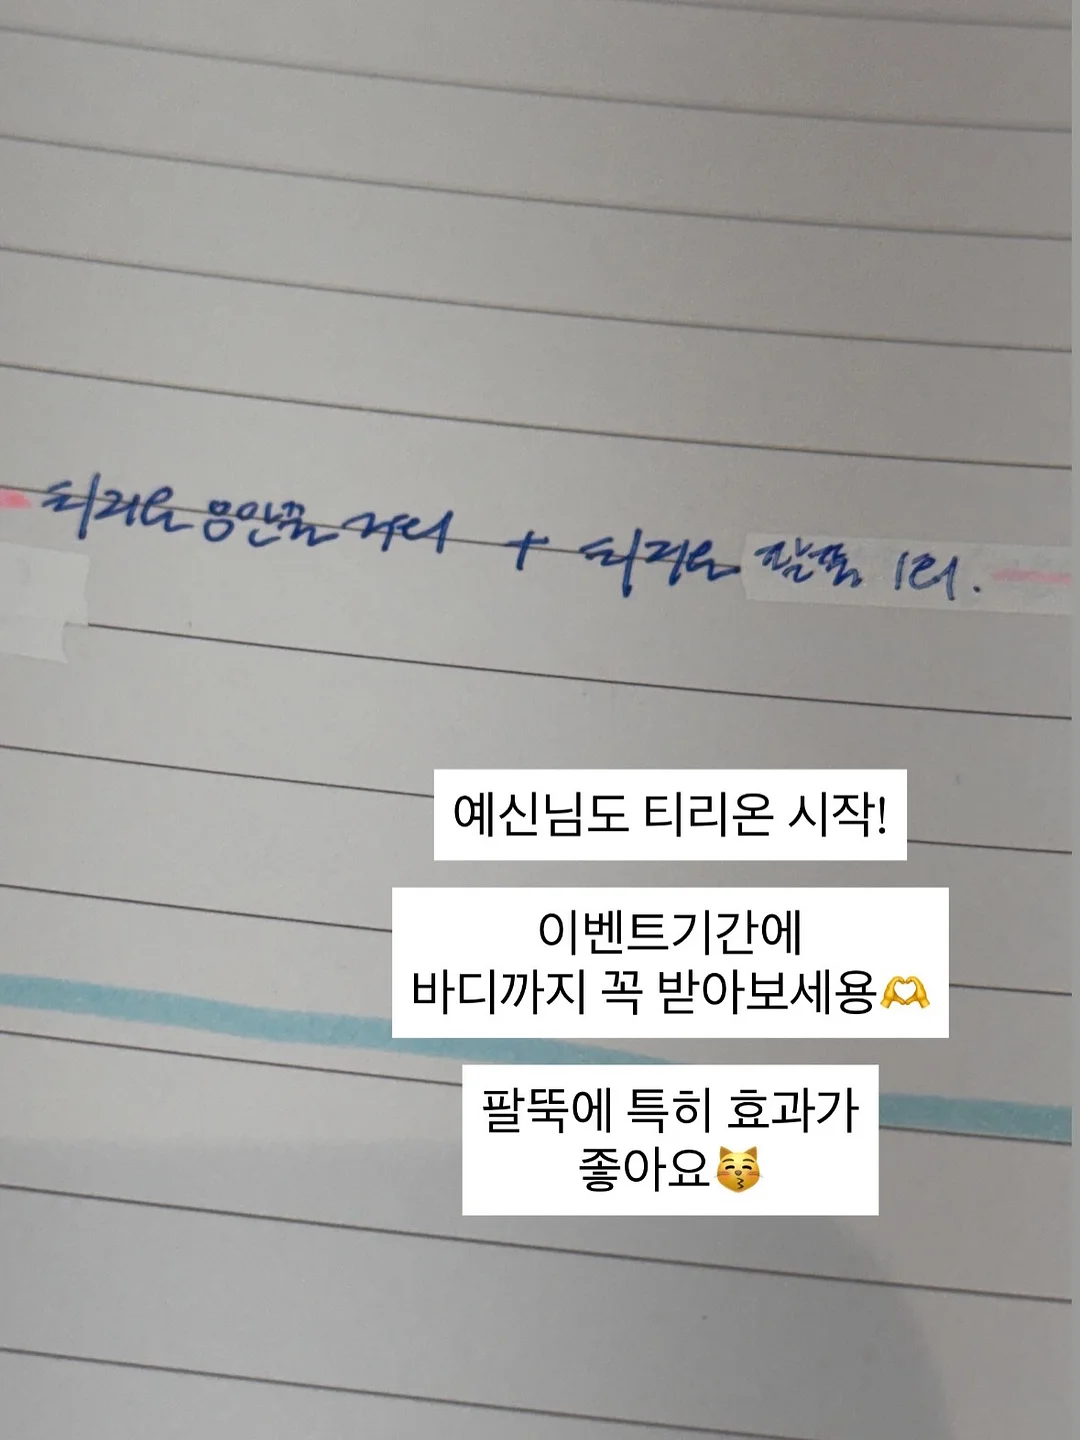 티리온 웅안꿀 국터 + 티리온 팔뚝 1회.
예신님도 티리온 시작!
이벤트기간에
바디까지 꼭 받아보세용🫶
팔뚝에 특히 효과가
좋아요😽